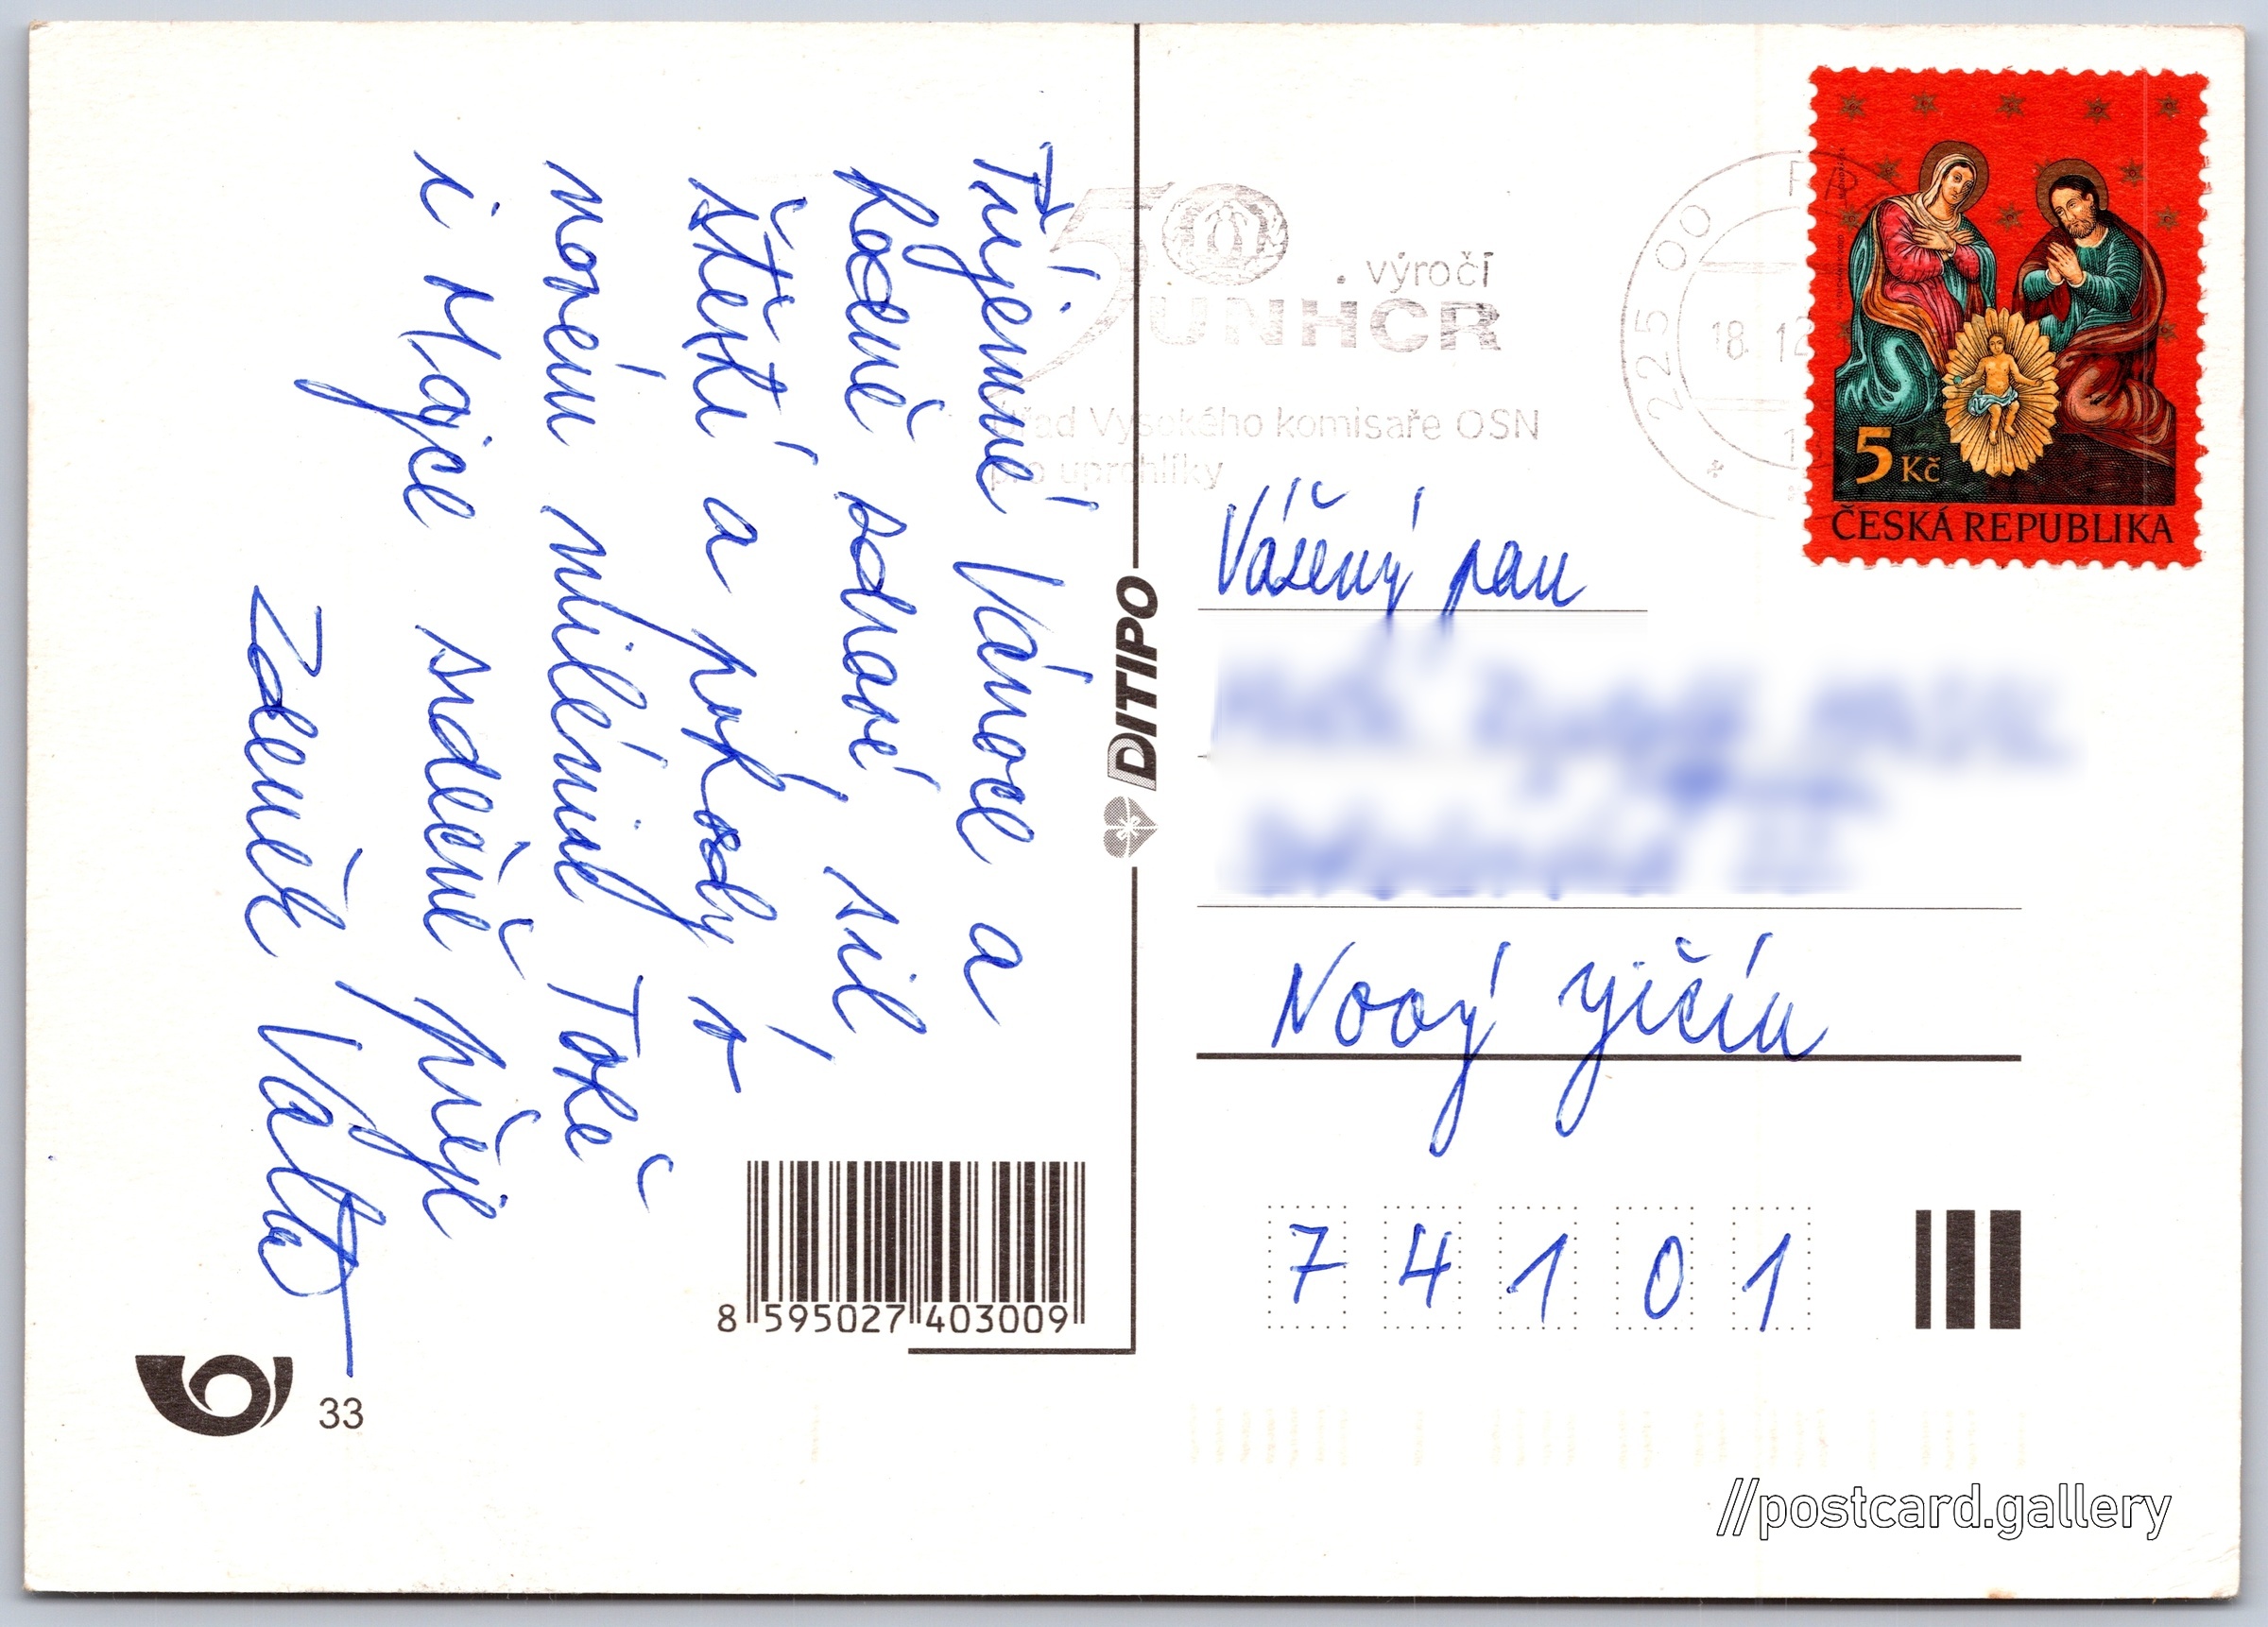 Příjemné Vánoce a
hodně zdraví, sil,
štěstí a pohody v
novém miléniu Tobě
i Majce srdečně přeje
Zdeněk Válta
8 595027 403009
33
DITIPO
50. výročí
UNHCR
Úřad Vysokého komisaře OSN
pro uprchlíky
225 00
18. 12
5 Kč
ČESKÁ REPUBLIKA
Vážený pan
Nový Jičín
7 4 1 0 1
//postcard.gallery